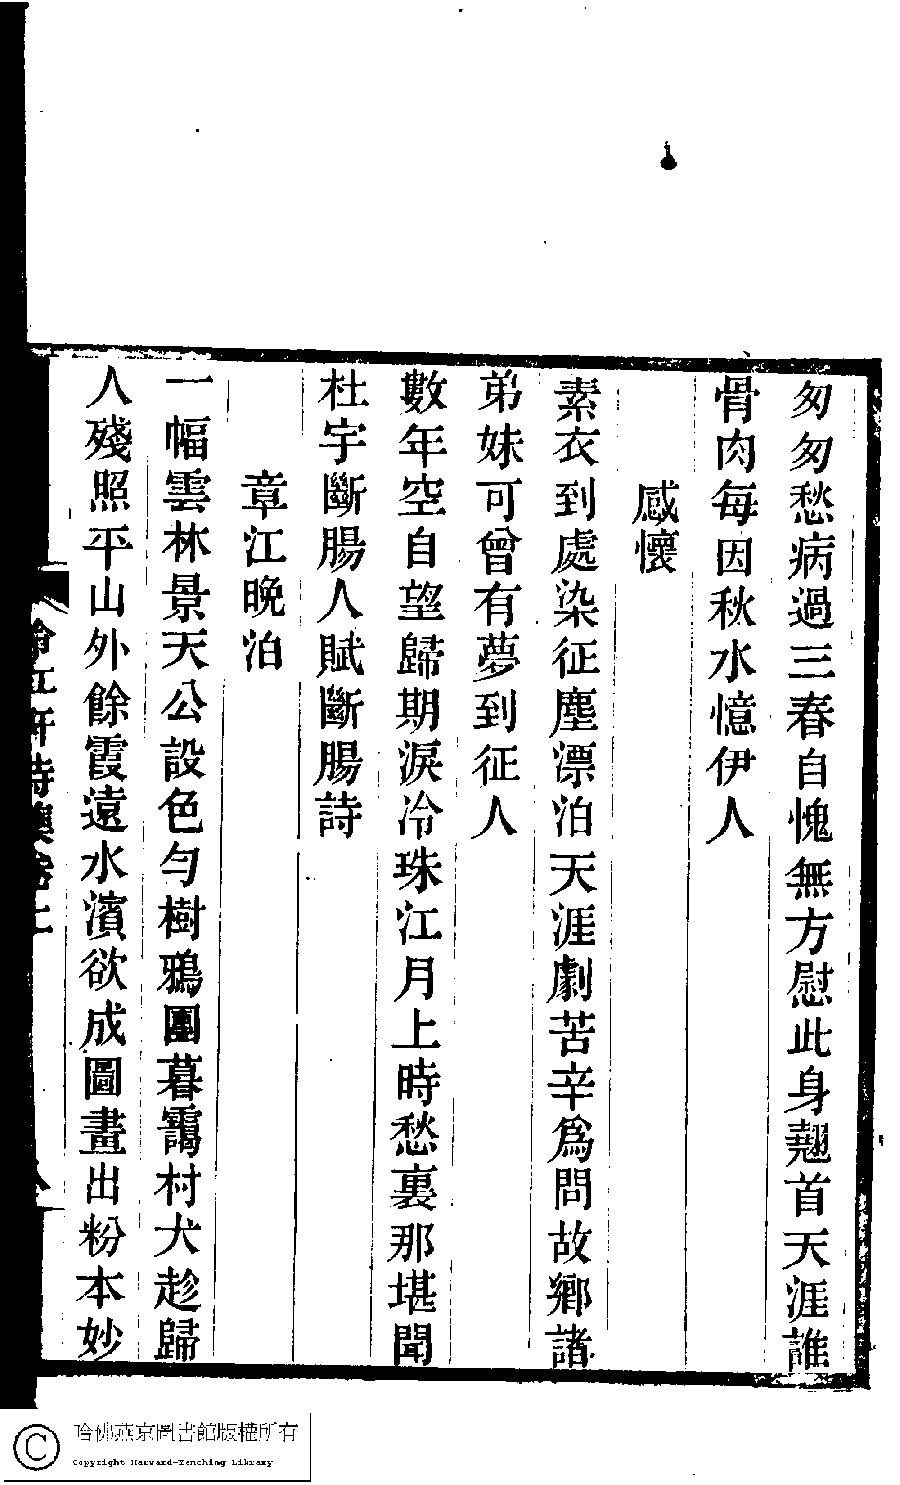 匆匆愁病過三春自愧無方慰此身翹首天涯誰
骨肉每因秋水憶伊人
感懷
素衣到處染征塵漂泊天涯劇苦辛爲問故鄉諸
弟妹可曾有夢到征人
數年空自望歸期淚冷珠江月上時愁裏那堪聞
杜宇斷腸人賦斷腸詩
章江晚泊
一幅雲林景天公設色勻樹鴉團暮靄村犬趁歸
人殘照平山外餘霞遠水濱欲成圖畫出粉本妙
軒詩
上
哈佛燕京圖書館版權所有
Copyright Harvard-Yenching Library